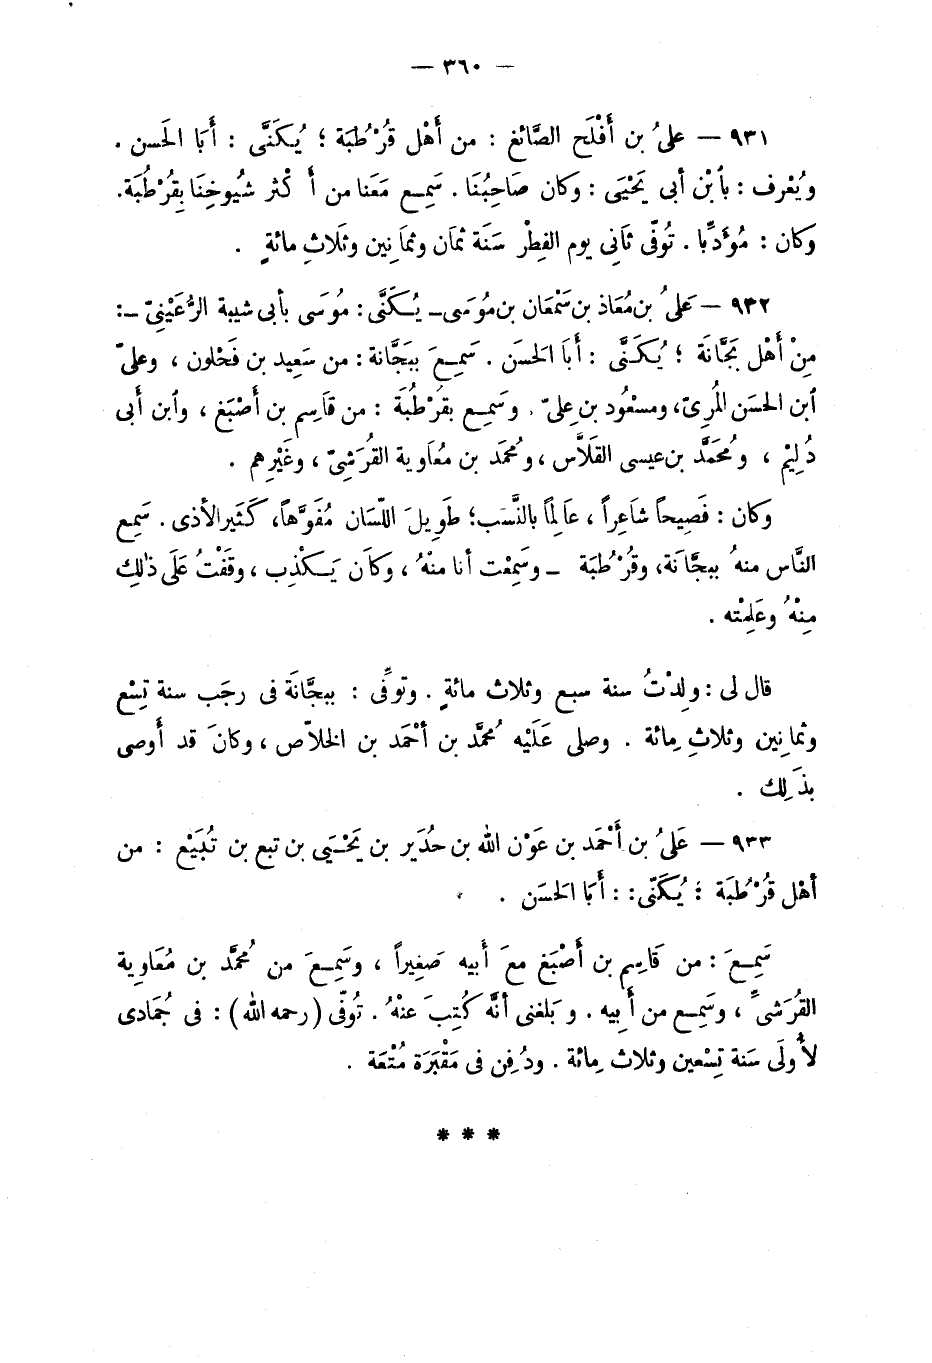 — ٣٦٠ —
٩٣١ — علىُ بن أَفْلَح الصَّائغ : من أَهْل قُرْطُبَة ؛ يُكَنَّى : أَبَا الحَسن .
ويُعْرف : بأبْن أبى يَحْيَى : وكان صَاحِبُنَا . سَمِع مَعَنا من أَكْثر شُيُوخِنَا بِقُرْطُبَة.
وكان : مُوَدِّبا . تُوفّى ثَانِى يوم الفِطْر سَنَة ثمَان وثمَانِين وثَلَاثِ مائةٍ .
٩٣٢ — عَلىُ بن مُعَاذ بن سَمْعَان بن مُوسَى ــ يُكَنَّى : مُوسَى بأبى شيبة الرُّعَيْنِىّ ــ:
مِنْ أَهْل بَجَّانَة ؛ يُكَنَّى : أَبَا الحَسَن . سَمِعَ بِبَجَّانة : من سَعِيد بن فَحْلون ، وعلىّ
ابن الحسَن المُرِىّ، ومسعُود بن عِلىّ . وسَمِع بقُرْطُبَة : من قاَسِم بن أصْبَغ ، وأبن أَبى
دُلِيْم ، ومُحَمَّد بن عيسى القَلاَّس ، ومُحمَد بن مُعَاوية القُرَشِىّ ، وغَيْرِهم .
وكان : فَصِيحاً شاَعِراً ، عَالِماً بالنَّسَب؛ طَوِيلَ اللّسَان مُفَوَّهاً، كَثَير الأذى . سَمِع
النَّاس منهُ ببجَّانَة، وقُرْطُبَة ــ وسَمِعْت أنا منْهُ ، وكَاَن يَكْذِب ، وقفْتُ عَلَى ذٰلِك
مِنْهُ وعَلِمْته .
قال لى : ولِدْتُ سنة سبع وثلاث مائةٍ . وتوفِّى : ببجَّانَة فى رجَب سنة تِسْع
وثمانِين وثلاثِ مِائة . وصلى عَلَيْه مُحمَّد بن أحْمَد بن الخلاّص ، وكانَ قد أَوصى
بذَلِك .
٩٣٣ — عَلىُ بن أَحْمَد بن عَوْن الله بن حُدَير بن يَحْيَى بن تبع بن تُبَيْع : من
أهْل قُرْطُبَة ؛ يُكَنّى: : أَبَا الحَسَن .
سَمِعَ : من قَاسِم بن أَصْبَغ معَ أَبيه صَغِيراً ، وسَمِعَ من مُحمَّد بن مُعَاوِية
القُرَشىِّ ، وسَمِع من أَبِيه . وبَلغنى أنَّه كُتِبَ عنْهُ . تُوفّى ( رحمه الله ) : فى جُمَادى
لأُولَى سَنة تِسْعين وثلاث مِائة . ودُفِن فى مَقْبَرَة مُتْعَة .
* * *